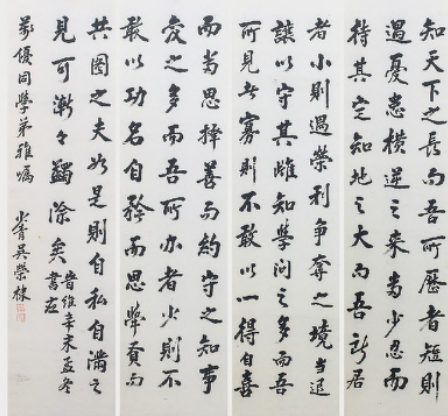 知天下之長而吾所歷者短則
遇憂患橫逆之来當少忍而
待其定知地之大而吾所居
者小則遇榮利爭奪之境當退
讓以守其雌知學問之多而吾
所見者寡則不敢以一得自喜
而當思擇善而約守之知事
變之多而吾所办者少則不
敢以功名自矜而思舉賢而
共圖之夫如是則自私自滿之
見可漸々蠲除矣
旹維辛未孟冬
書應
優同學弟雅囑
吳榮棣